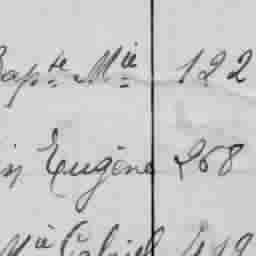 Bapte Mie 122
in Eugène 268
Mie Gabriel 419